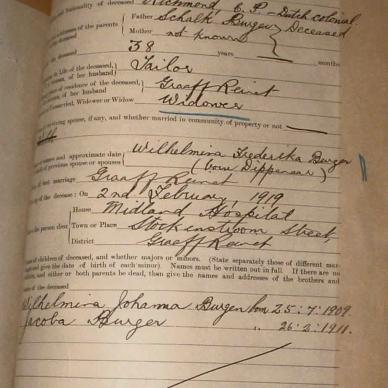 Nationality of deceased Richmond C.P. - Dutch colonial
of the parents Father Schalk Burger Deceased
Mother not known
38 years months
Tailor
Graaff Reinet
Widower or Widow Widower
spouse, if any, and whether married in community of property or not
names and approximate date Wilhelmina Frederika Burger
of previous spouse or spouses (born Dippenaar)
last marriage Graaff Reinet
of the decease: On 2nd February, 1919
House Midland Hospital
the person died Town or Place Stockenstroom Street,
District Graaff Reinet
of children of deceased, and whether majors or minors. (State separately those of different
and give the date of birth of each minor). Names must be written out in full. If there are no
and either or both parents be dead, then give the names and addresses of the brothers and
of the deceased
Wilhelmina Johanna Burger born 25:7:1909.
Jacoba Burger " 26:2:1911.